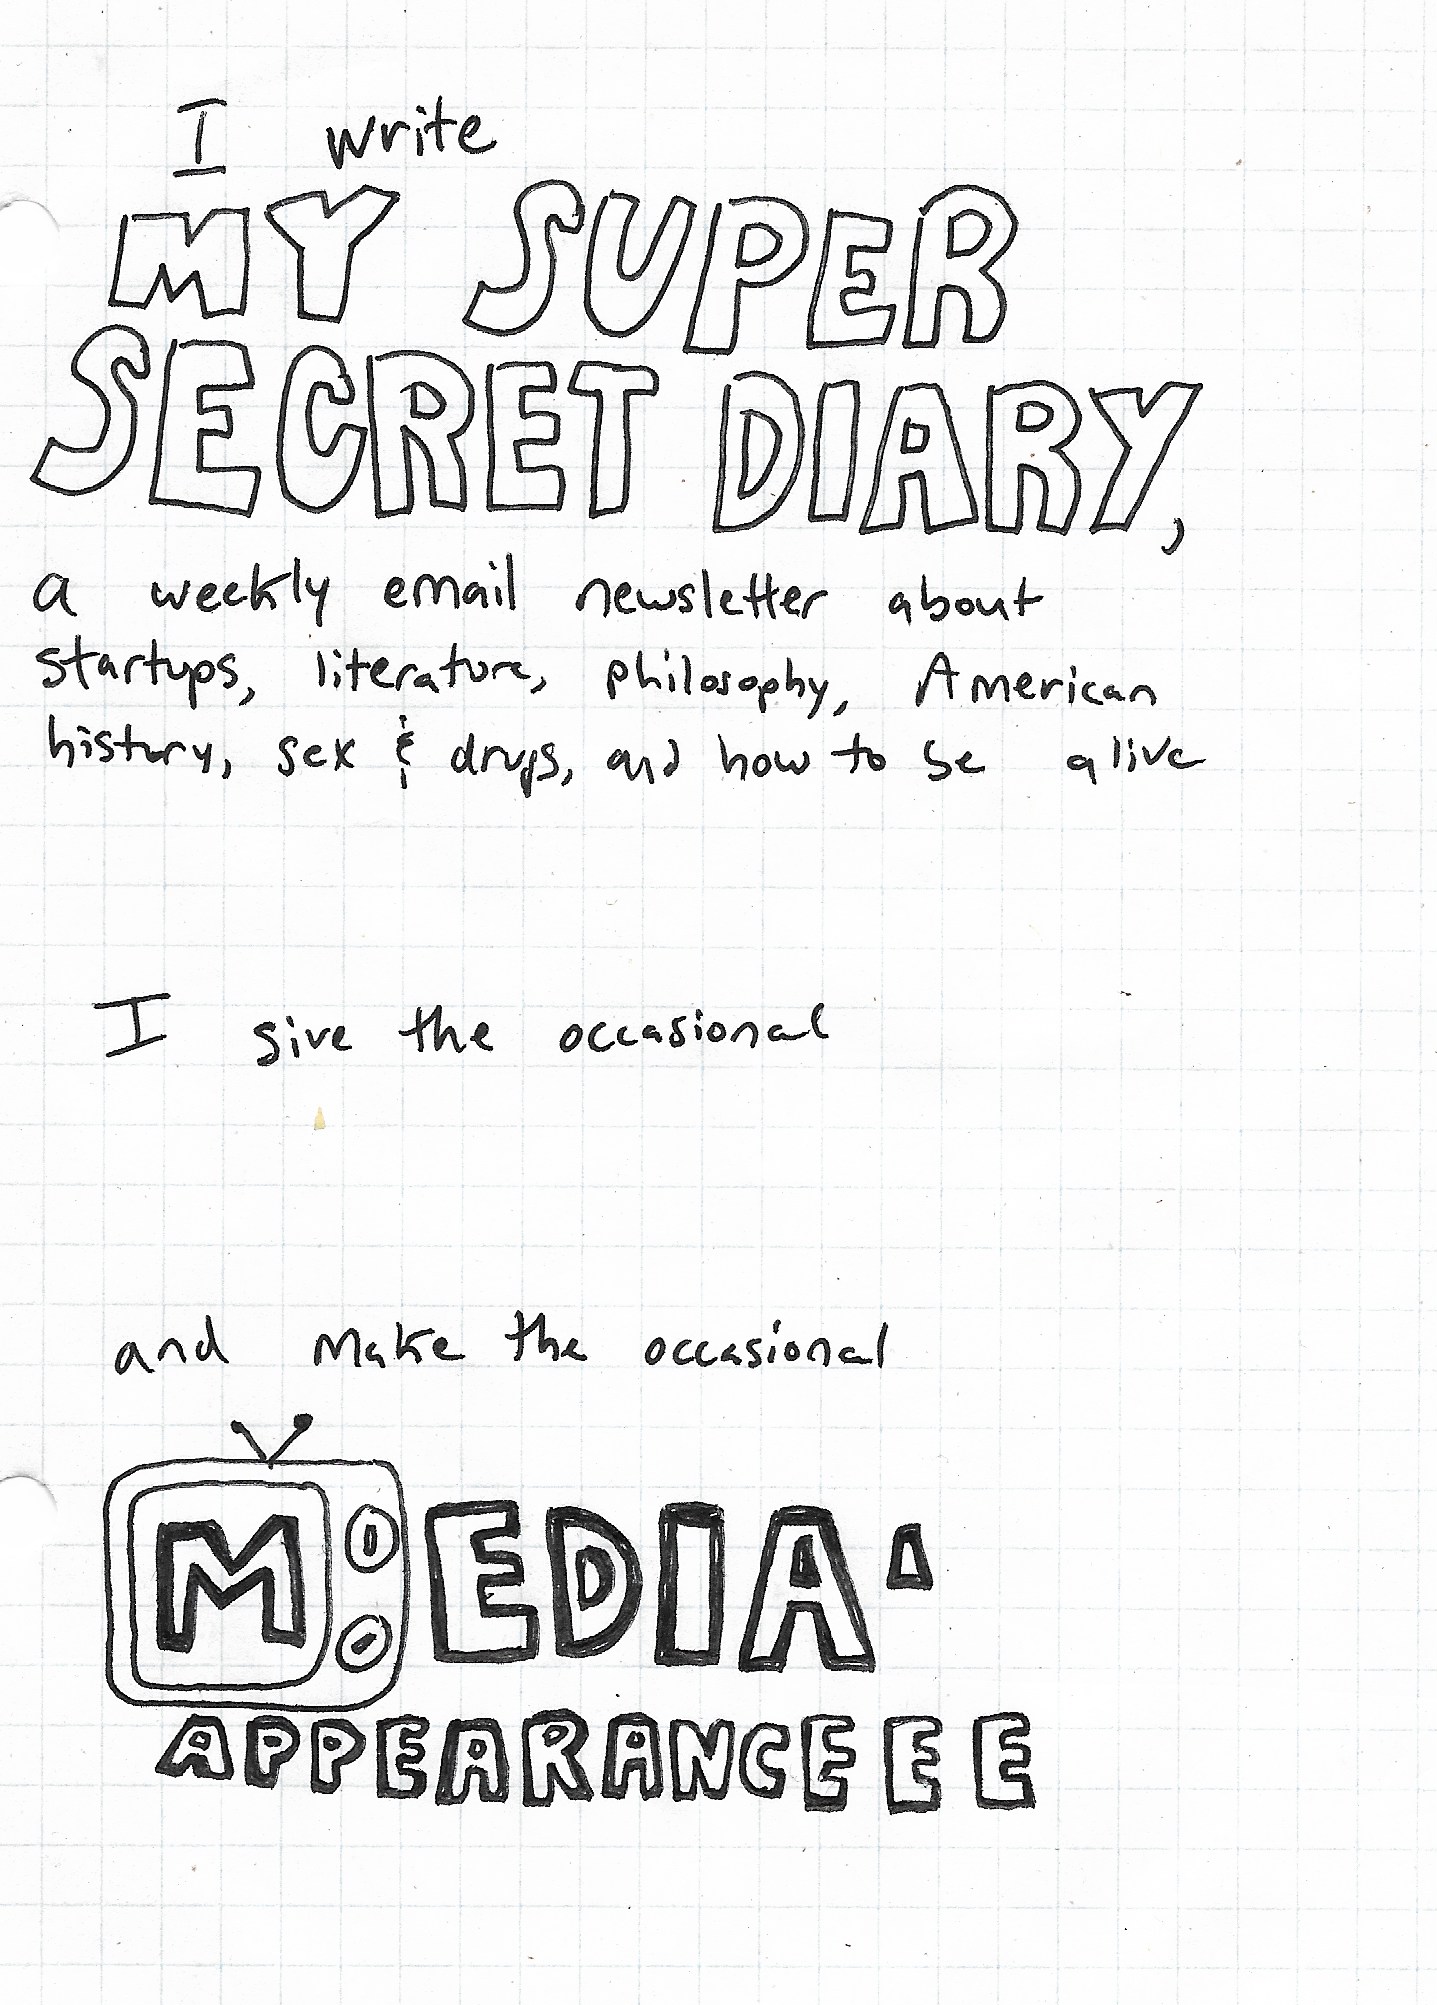 I write
MY SUPER
SECRET DIARY,
a weekly email newsletter about
startups, literature, philosophy, American
history, sex & drugs, and how to be alive
I give the occasional
and make the occasional
MEDIA
APPEARANCEEE